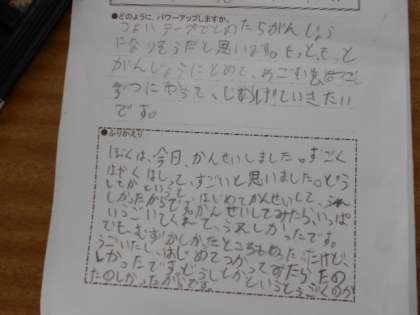 ●どのように、パワーアップしますか。
つよいテープでとめたらがんじょう
になりそうだと思います。もっと、もっと
がんじょうにとめて、
ずつにやって、しあげていきたい
です。
●ふりかえり
ぼくは、今日、かんせいしました。すごく
はやくはしって、すごいと思いました。どう
してかというと、はじめてかんせいして、うれ
しかったからです。かんせいしてみたら、いっぱ
いうごいてくれて、うれしかったです。
でも、むずかしかったところもあった、だけど、
うごいたし、はじめてつかってみたら、たの
しかったです。どうしてかというと、うごくのが
たのしかったからです。